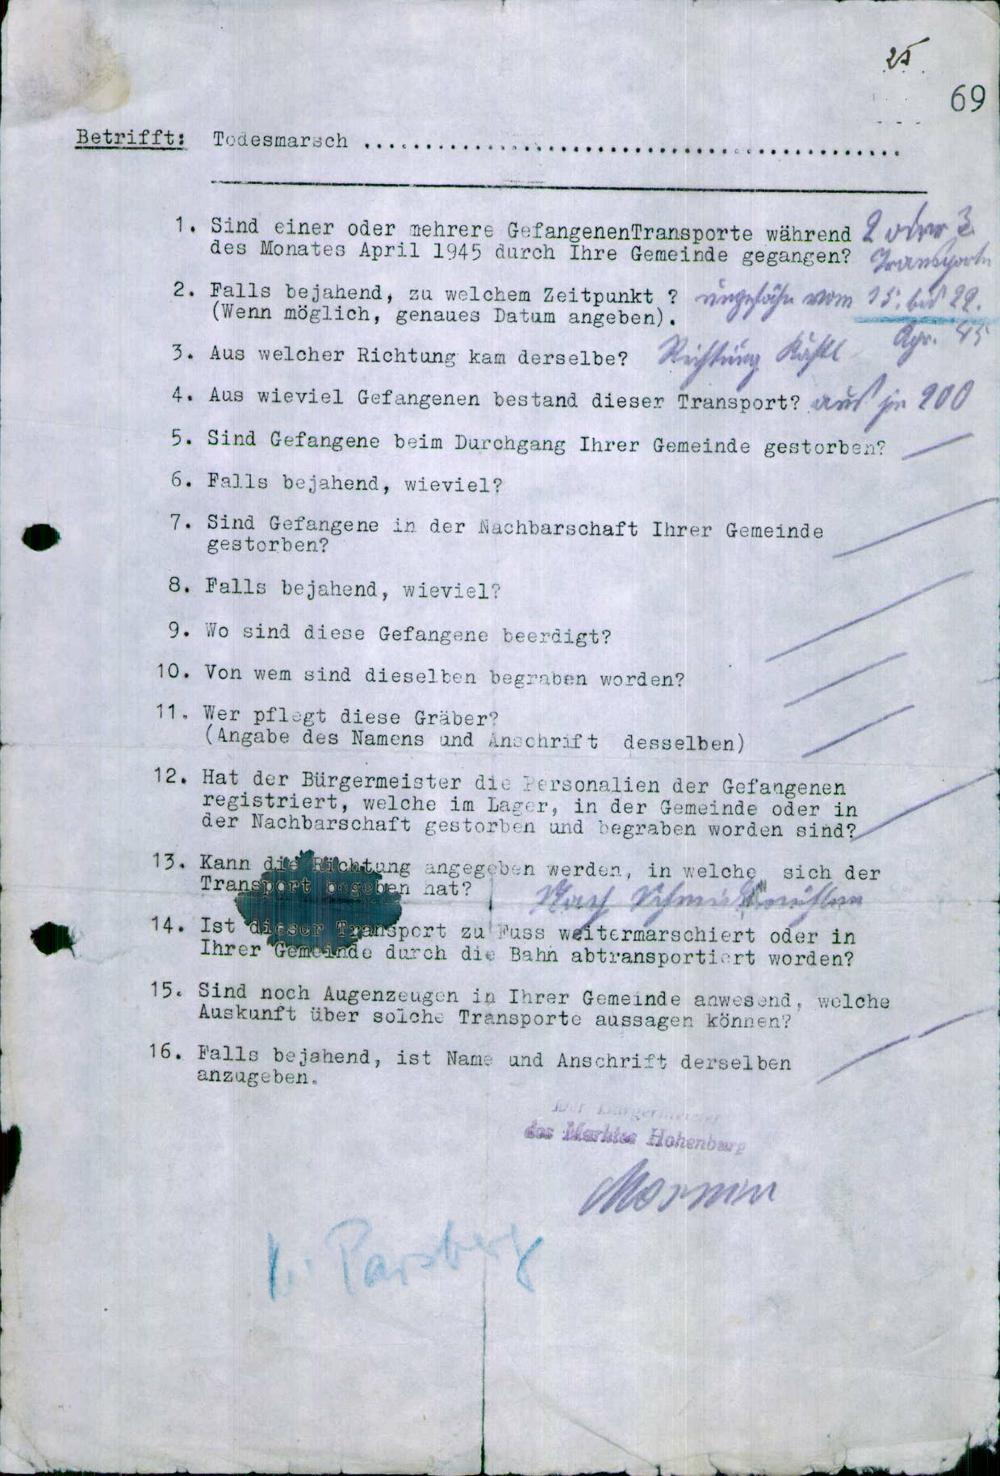 25
69
Betrifft: Todesmarsch ................................................
1. Sind einer oder mehrere GefangenenTransporte während 2 oder 3
des Monates April 1945 durch Ihre Gemeinde gegangen? Transporte
2. Falls bejahend, zu welchem Zeitpunkt ? ungefähr vom 15. bis 22.
(Wenn möglich, genaues Datum angeben). Apr. 45
3. Aus welcher Richtung kam derselbe? Richtung Kastl
4. Aus wieviel Gefangenen bestand dieser Transport? aus je 200
5. Sind Gefangene beim Durchgang Ihrer Gemeinde gestorben?
6. Falls bejahend, wieviel?
7. Sind Gefangene in der Nachbarschaft Ihrer Gemeinde
gestorben?
8. Falls bejahend, wieviel?
9. Wo sind diese Gefangene beerdigt?
10. Von wem sind dieselben begraben worden?
11. Wer pflegt diese Gräber?
(Angabe des Namens und Anschrift desselben)
12. Hat der Bürgermeister die Personalien der Gefangenen
registriert, welche im Lager, in der Gemeinde oder in
der Nachbarschaft gestorben und begraben worden sind?
13. Kann die Richtung angegeben werden, in welche sich der
Transport begeben hat? Nach Schmidmühlen
14. Ist dieser Transport zu Fuss weitermarschiert oder in
Ihrer Gemeinde durch die Bahn abtransportiert worden?
15. Sind noch Augenzeugen in Ihrer Gemeinde anwesend, welche
Auskunft über solche Transporte aussagen können?
16. Falls bejahend, ist Name und Anschrift derselben
anzugeben.
Der Bürgermeister
des Marktes Hohenburg
Parsberg